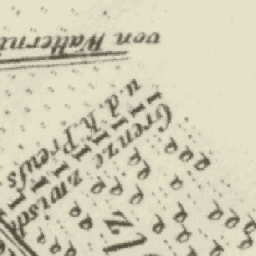 von Walterni
Grenze zwisch
u. d. K. Preufs